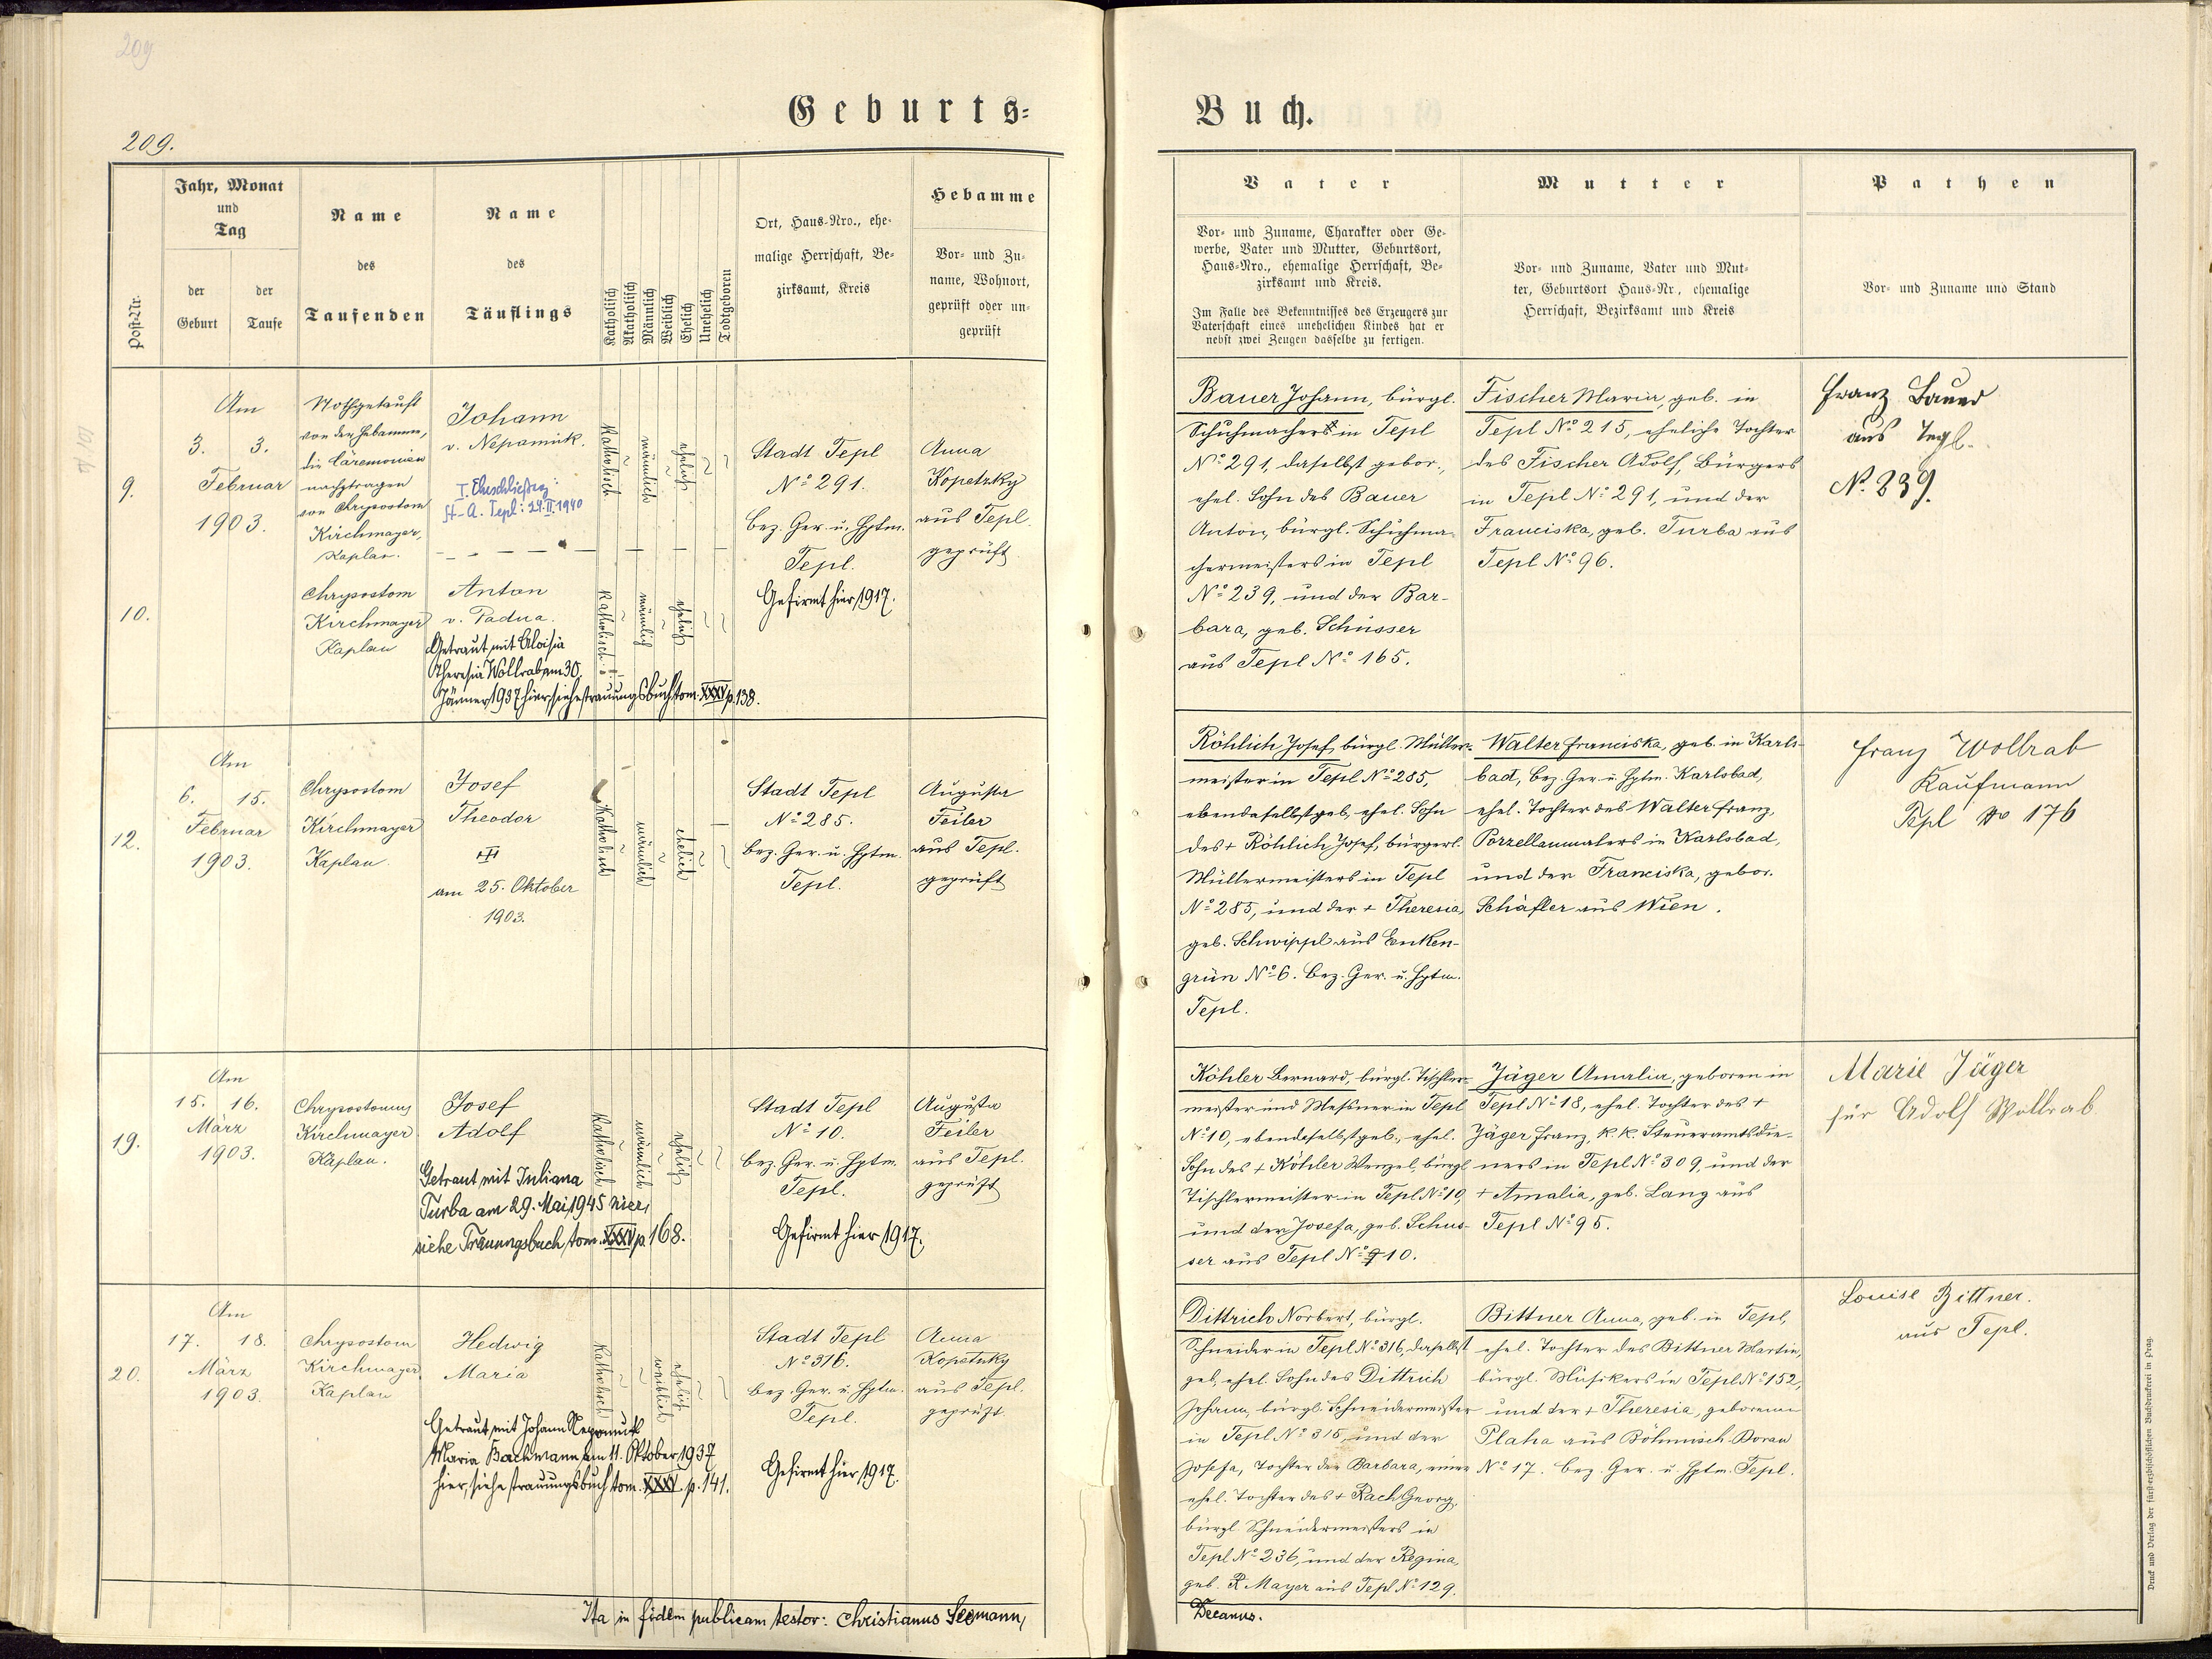 209
Geburts-
209.
Post-Nr.
Jahr, Monat
und
Tag
der
Geburt
der
Taufe
Name
des
Taufenden
Name
des
Täuflings
Katholisch
Akatholisch
Männlich
Weiblich
Ehelich
Unehelich
Todtgeboren
Ort, Haus-Nro., ehe-
malige Herrschaft, Be-
zirksamt, Kreis
Hebamme
Vor- und Zu-
name, Wohnort,
geprüft oder un-
geprüft
9.
Am
3. 3.
Februar
1903.
Nothgetauft
von der Hebamme,
die Cäremonien
nachgetragen
von Chrysostom
Kirchmayer,
Kaplan.
Johann
v. Nepomuk.
I. Eheschließung:
St-A. Tepl: 24.II.1940
Katholisch
männlich
ehelich
Stadt Tepl
No 291.
Bez. Ger. u. Hptm.
Tepl.
Anna
Kopetzky
aus Tepl.
geprüft
10.
Chrysostom
Kirchmayer
Kaplan
Anton
v. Padua.
Getraut mit Aloisia
Theresia Wollrab am 30.
Jänner 1937 hier, siehe Trauungsbuch tom. XXXV p. 138.
Katholisch
männlich
ehelich
Gefirmt hier 1917.
12.
Am
6. 15.
Februar
1903.
Chrysostom
Kirchmayer
Kaplan.
Josef
Theodor
am 25. Oktober
1903.
Katholisch
männlich
ehelich
Stadt Tepl
No 285.
Bez. Ger. u. Hptm.
Tepl.
Augusta
Feiler
aus Tepl.
geprüft
19.
Am
15. 16.
März
1903.
Chrysostomus
Kirchmayer
Kaplan.
Josef
Adolf
Getraut mit Juliana
Turba am 29. Mai 1945 hier,
siehe Trauungsbuch tom. XXXV p. 168.
Katholisch
männlich
ehelich
Stadt Tepl
No 10.
Bez. Ger. u. Hptm.
Tepl.
Gefirmt hier 1917.
Augusta
Feiler
aus Tepl.
geprüft
20.
Am
17. 18.
März
1903.
Chrysostom
Kirchmayer
Kaplan
Hedwig
Maria
Getraut mit Johann Nepomuk
Maria Bachmann am 11. Oktober 1937
hier, siehe Trauungsbuch tom. XXXV. p. 141.
Katholisch
weiblich
ehelich
Stadt Tepl
No 316.
Bez. Ger. u. Hptm.
Tepl.
Gefirmt hier 1917.
Anna
Kopetzky
aus Tepl.
geprüft
Ita in fidem publicam testor: Christianus Seemann,
Buch.
Vater
Vor- und Zuname, Charakter oder Ge-
werbe, Vater und Mutter, Geburtsort,
Haus-Nro., ehemalige Herrschaft, Be-
zirksamt und Kreis.
Im Falle des Bekenntnisses des Erzeugers zur
Vaterschaft eines unehelichen Kindes hat er
nebst zwei Zeugen dasselbe zu fertigen.
Mutter
Vor- und Zuname, Vater und Mut-
ter, Geburtsort Haus-Nr., ehemalige
Herrschaft, Bezirksamt und Kreis
Pathen
Vor- und Zuname und Stand
Bauer Johann, bürgl.
Schuhmacher in Tepl
No 291, daselbst gebor.,
ehel. Sohn des Bauer
Anton, bürgl. Schuhma-
chermeisters in Tepl
No 239, und der Bar-
bara, geb. Schusser
aus Tepl No 165.
Fischer Maria, geb. in
Tepl No 215, eheliche Tochter
des Fischer Adolf, Bürgers
in Tepl No 291, und der
Franciska, geb. Turba aus
Tepl No 96.
Franz Bauer
aus Tepl.
No. 239.
Röhlich Josef, bürgl. Müller-
meister in Tepl No 285,
ebendaselbst geb., ehel. Sohn
des + Röhlich Josef, bürgerl.
Müllermeisters in Tepl
No 285, und der + Theresia,
geb. Schwippl aus Enken-
grün No 6. Bez. Ger. u. Hptm.
Tepl.
Walter Franciska, geb. in Karls-
bad, Bez. Ger. u. Hptm. Karlsbad,
ehel. Tochter des Walter Franz,
Porzellanmalers in Karlsbad,
und der Franciska, gebor.
Schäfler aus Wien.
Franz Wollrab
Kaufmann
Tepl No 176
Köhler Bernard, bürgl. Tischler-
meister und Messner in Tepl
No 10, ebendaselbst geb., ehel.
Sohn des + Köhler Wenzel, bürgl.
Tischlermeister in Tepl No 10,
und der Josefa, geb. Schus-
ser aus Tepl No 210.
Jäger Amalia, geboren in
Tepl No 18, ehel. Tochter des +
Jäger Franz, k. k. Steueramtsdie-
ners in Tepl No 309, und der
+ Amalia, geb. Lang aus
Tepl No 95.
Marie Jäger
für Adolf Wollrab
Dittrich Norbert, bürgl.
Schneider in Tepl No 316, daselbst
geb., ehel. Sohn des Dittrich
Johann, bürgl. Schneidermeister
in Tepl No 316, und der
Josefa, Tochter der Barbara, einer
ehel. Tochter des + Rach Georg,
bürgl. Schneidermeisters in
Tepl No 236, und der Regina,
geb. Mayer aus Tepl No 129.
Bittner Anna, geb. in Tepl,
ehel. Tochter des Bittner Martin,
bürgl. Musikers in Tepl No 152,
und der + Theresia, geborenen
Plaha aus Böhmisch-Borau
No 17. Bez. Ger. u. Hptm. Tepl.
Louise Bittner.
aus Tepl.
Decanus.
Druck und Verlag der fürst-erzbischöflichen Buchdruckerei in Prag.